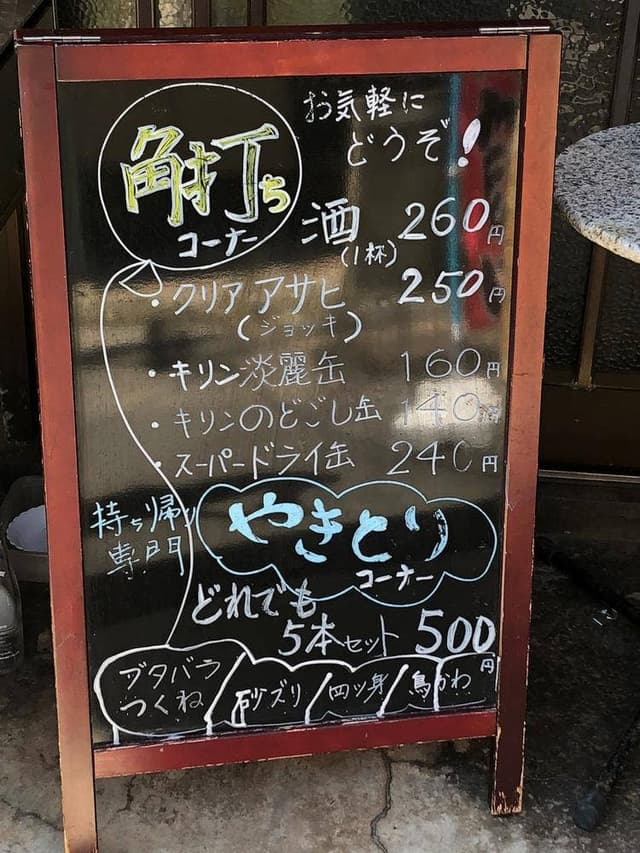 お気軽に
どうぞ!
角打ち
コーナー
酒 260円
(1杯)
・クリア アサヒ 250円
(ジョッキ)
・キリン淡麗缶 160円
・キリンのどごし缶 140円
・スーパードライ缶 240円
持ち帰り
専門
やきとり
コーナー
どれでも
5本セット 500円
ブタバラ
つくね
砂ズリ
四ツ身
鳥かわ